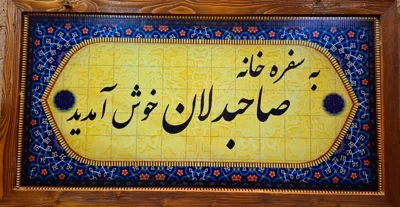 به سفره خانه
صاحبدلان خوش آمدید